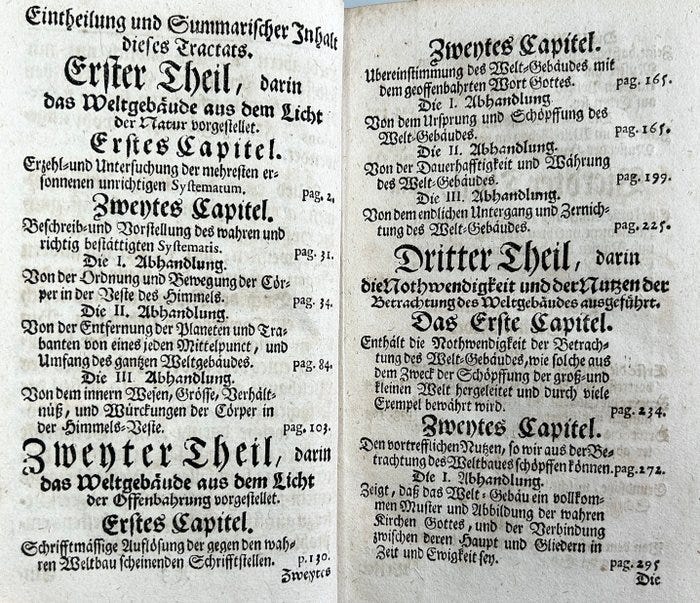 Eintheilung und Summarischer Inhalt
dieses Tractats.
Erster Theil, darin
das Weltgebäude aus dem Licht
der Natur vorgestellet.
Erstes Capitel.
Erzehl-und Untersuchung der mehresten er-
sonnenen unrichtigen Systematum. pag. 2.
Zweytes Capitel.
Beschreib-und Vorstellung des wahren und
richtig bestättigten Systematis. pag. 31.
Die I. Abhandlung.
Von der Ordnung und Bewegung der Cör-
per in der Veste des Himmels. pag. 34.
Die II. Abhandlung.
Von der Entfernung der Planeten und Tra-
banten von eines jeden Mittelpunct, und
Umfang des gantzen Weltgebäudes. pag. 84.
Die III Abhandlung.
Von dem innern Wesen, Grösse, Verhält-
nüß, und Würckungen der Cörper in
der Himmels-Veste. pag. 103.
Zweyter Theil, darin
das Weltgebäude aus dem Licht
der Offenbahrung vorgestellet.
Erstes Capitel.
Schrifftmässige Auflösung der gegen den wah-
ren Weltbau scheinenden Schrifftstellen. p. 130.
Zweytes
Zweytes Capitel.
Ubereinstimmung des Welt-Gebäudes mit
dem geoffenbahrten Wort Gottes. pag. 165.
Die I. Abhandlung
Von dem Ursprung und Schöpffung des
Welt-Gebäudes. pag. 165.
Die II. Abhandlung.
Von der Dauerhafftigkeit und Währung
des Welt-Gebäudes. pag. 199.
Die III. Abhandlung.
Von dem endlichen Untergang und Zernich-
tung des Welt-Gebäudes. pag. 225.
Dritter Theil, darin
die Nothwendigkeit und der Nutzen der
Betrachtung des Weltgebäudes ausgeführt.
Das Erste Capitel.
Enthält die Nothwendigkeit der Betrach-
tung des Welt-Gebäudes, wie solche aus
dem Zweck der Schöpffung der groß-und
kleinen Welt hergeleitet und durch viele
Exempel bewährt wird. pag. 234.
Zweytes Capitel.
Den vortrefflichen Nutzen, so wir aus der Be-
trachtung des Weltbaues schöpffen können. pag. 272.
Die I. Abhandlung.
Zeigt, daß das Welt-Gebäu ein vollkom-
men Muster und Abbildung der wahren
Kirchen Gottes, und der Verbindung
zwischen deren Haupt und Gliedern in
Zeit und Ewigkeit sey. pag. 295
Die